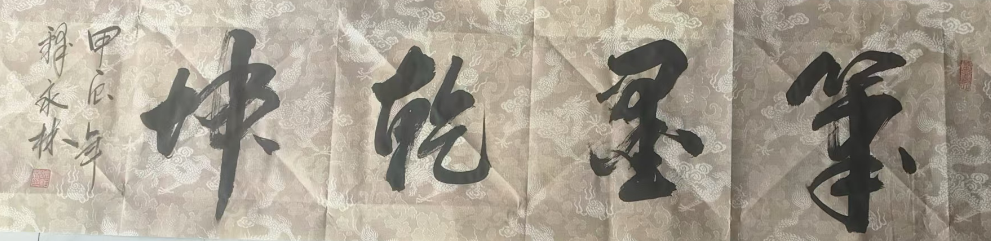 筆墨乾坤
甲辰年
釋永林